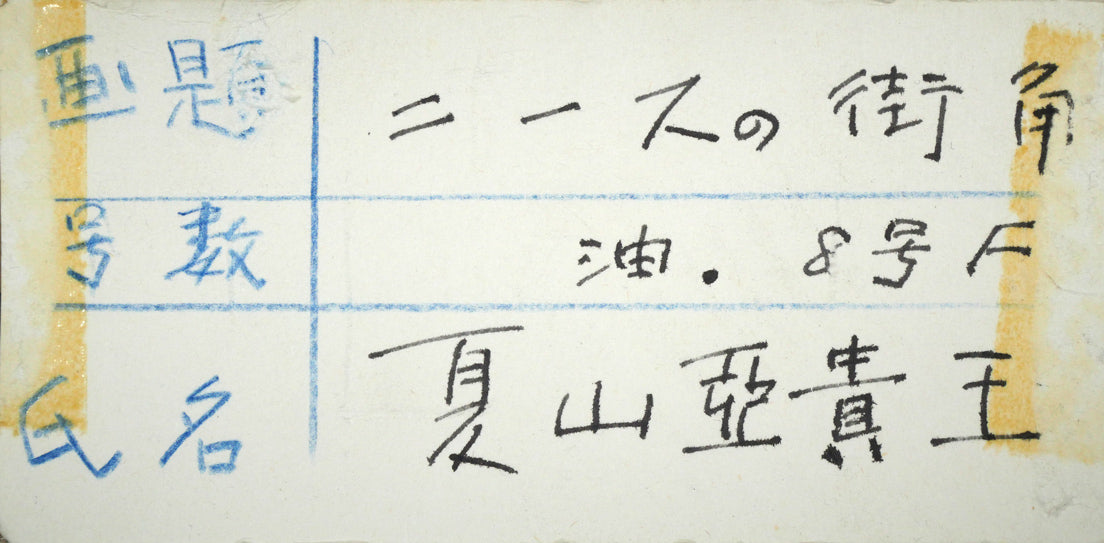 画題 ニースの街角
号数 油.8号F
氏名 夏山亞貴王